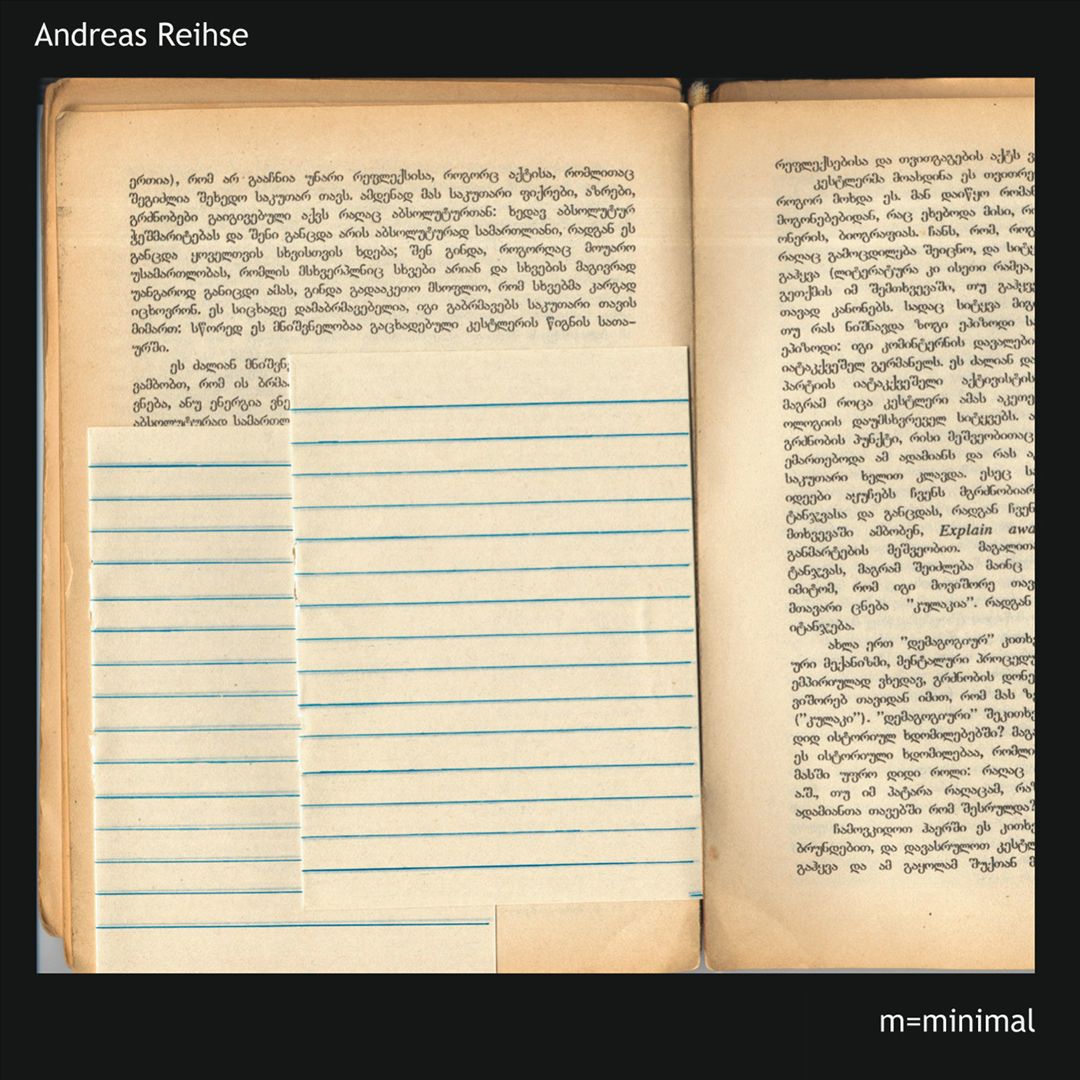 Andreas Reihse
ერთია), რომ არ გააჩნია უნარი რეფლექსისა, როგორც აქტისა, რომლითაც
შეგიძლია შეხედო საკუთარ თავს. ამდენად მას საკუთარი ფიქრები, აზრები,
გრძნობები გაიგივებული აქვს რაღაც აბსოლუტურთან: ხედავ აბსოლუტურ
ჭეშმარიტებას და შენი განცდა არის აბსოლუტურად სამართლიანი, რადგან ეს
განცდა ყოველთვის სხვისთვის ხდება; შენ გინდა, როგორღაც მოუარო
უსამართლობას, რომლის მსხვერპლნიც სხვები არიან და სხვების მაგივრად
უანგაროდ განიცდი ამას, გინდა გადააკეთო მსოფლიო, რომ სხვებმა კარგად
იცხოვრონ. ეს სიცხადე დამაბრმავებელია, იგი გაბრმავებს საკუთარი თავის
მიმართ: სწორედ ეს მნიშვნელობაა გაცხადებული კესტლერის წიგნის სათა-
ურში.
ეს ძალიან მნიშვნ
ვამბობთ, რომ ის ბრმა
ვნება, ანუ ენერგია ვნე
აბსოლუტურად სამართლ
რეფლექსებისა და თვითგაგების აქტს ვ
კესტლერმა მოახდინა ეს თვითრე
როგორ მოხდა ეს. მან დაიწყო რომან
მოგონებებიდან, რაც ეხებოდა მისი, რო
ონერის, ბიოგრაფიას. ჩანს, რომ, როგ
რაღაც გამოცდილება შეიცნო, და სიტყ
გაჰყვა (ლიტერატურა კი ისეთი რამეა,
გეთქმის იმ შემთხვევაში, თუ გაჰყვ
თავად კანონებს. სადაც სიტყვა მიგ
თუ რას ნიშნავდა ზოგი ეპიზოდი ს
ეპიზოდი: იგი კომინტერნის დავალები
იატაკქვეშელ გერმანელს. ეს ძალიან და
პარტიის იატაკქვეშელი აქტივისტის
მაგრამ როცა კესტლერი ამას აკეთე
ოლოგიის დაუმსხვრეველ სიტყვებს. ა
გრძნობის პუნქტი, რისი მეშვეობითაც
ემართებოდა ამ ადამიანს და რას ა
საკუთარი ხელით კლავდა. ესეც ს
იდეები აყუჩებს ჩვენს მგრძნობიარ
ტანჯვასა და განცდას, რადგან ჩვენ
მთხვევაში ამბობენ, Explain awa
განმარტების მეშვეობით. მაგალით
ტანჯვას, მაგრამ შეიძლება მაინც
იმიტომ, რომ იგი მოვიშორე თავ
მთავარი ცნება "კულაკია". რადგან
იტანჯება.
ახლა ერთ "დემაგოგიურ" კითხ
ური მექანიზმი, მენტალური პროცედუ
ემპირიულად ვხედავ, გრძნობის დონე
ვიშორებ თავიდან იმით, რომ მას ზ
("კულაკი"). "დემაგოგიური" შეკითხ
დიდ ისტორიულ ხდომილებებში? მაგ
ეს ისტორიული ხდომილებაა, რომლი
მასში უფრო დიდი როლი: რაღაც
ა.შ., თუ იმ პატარა რაღაცამ, რა
ადამიანთა თავებში რომ შესრულდა?
ჩამოვკიდოთ ჰაერში ეს კითხ
ბრუნდებით, და დავასრულოთ კესტლ
გაჰყვა და ამ გაყოლამ შუქთან მ
m=minimal